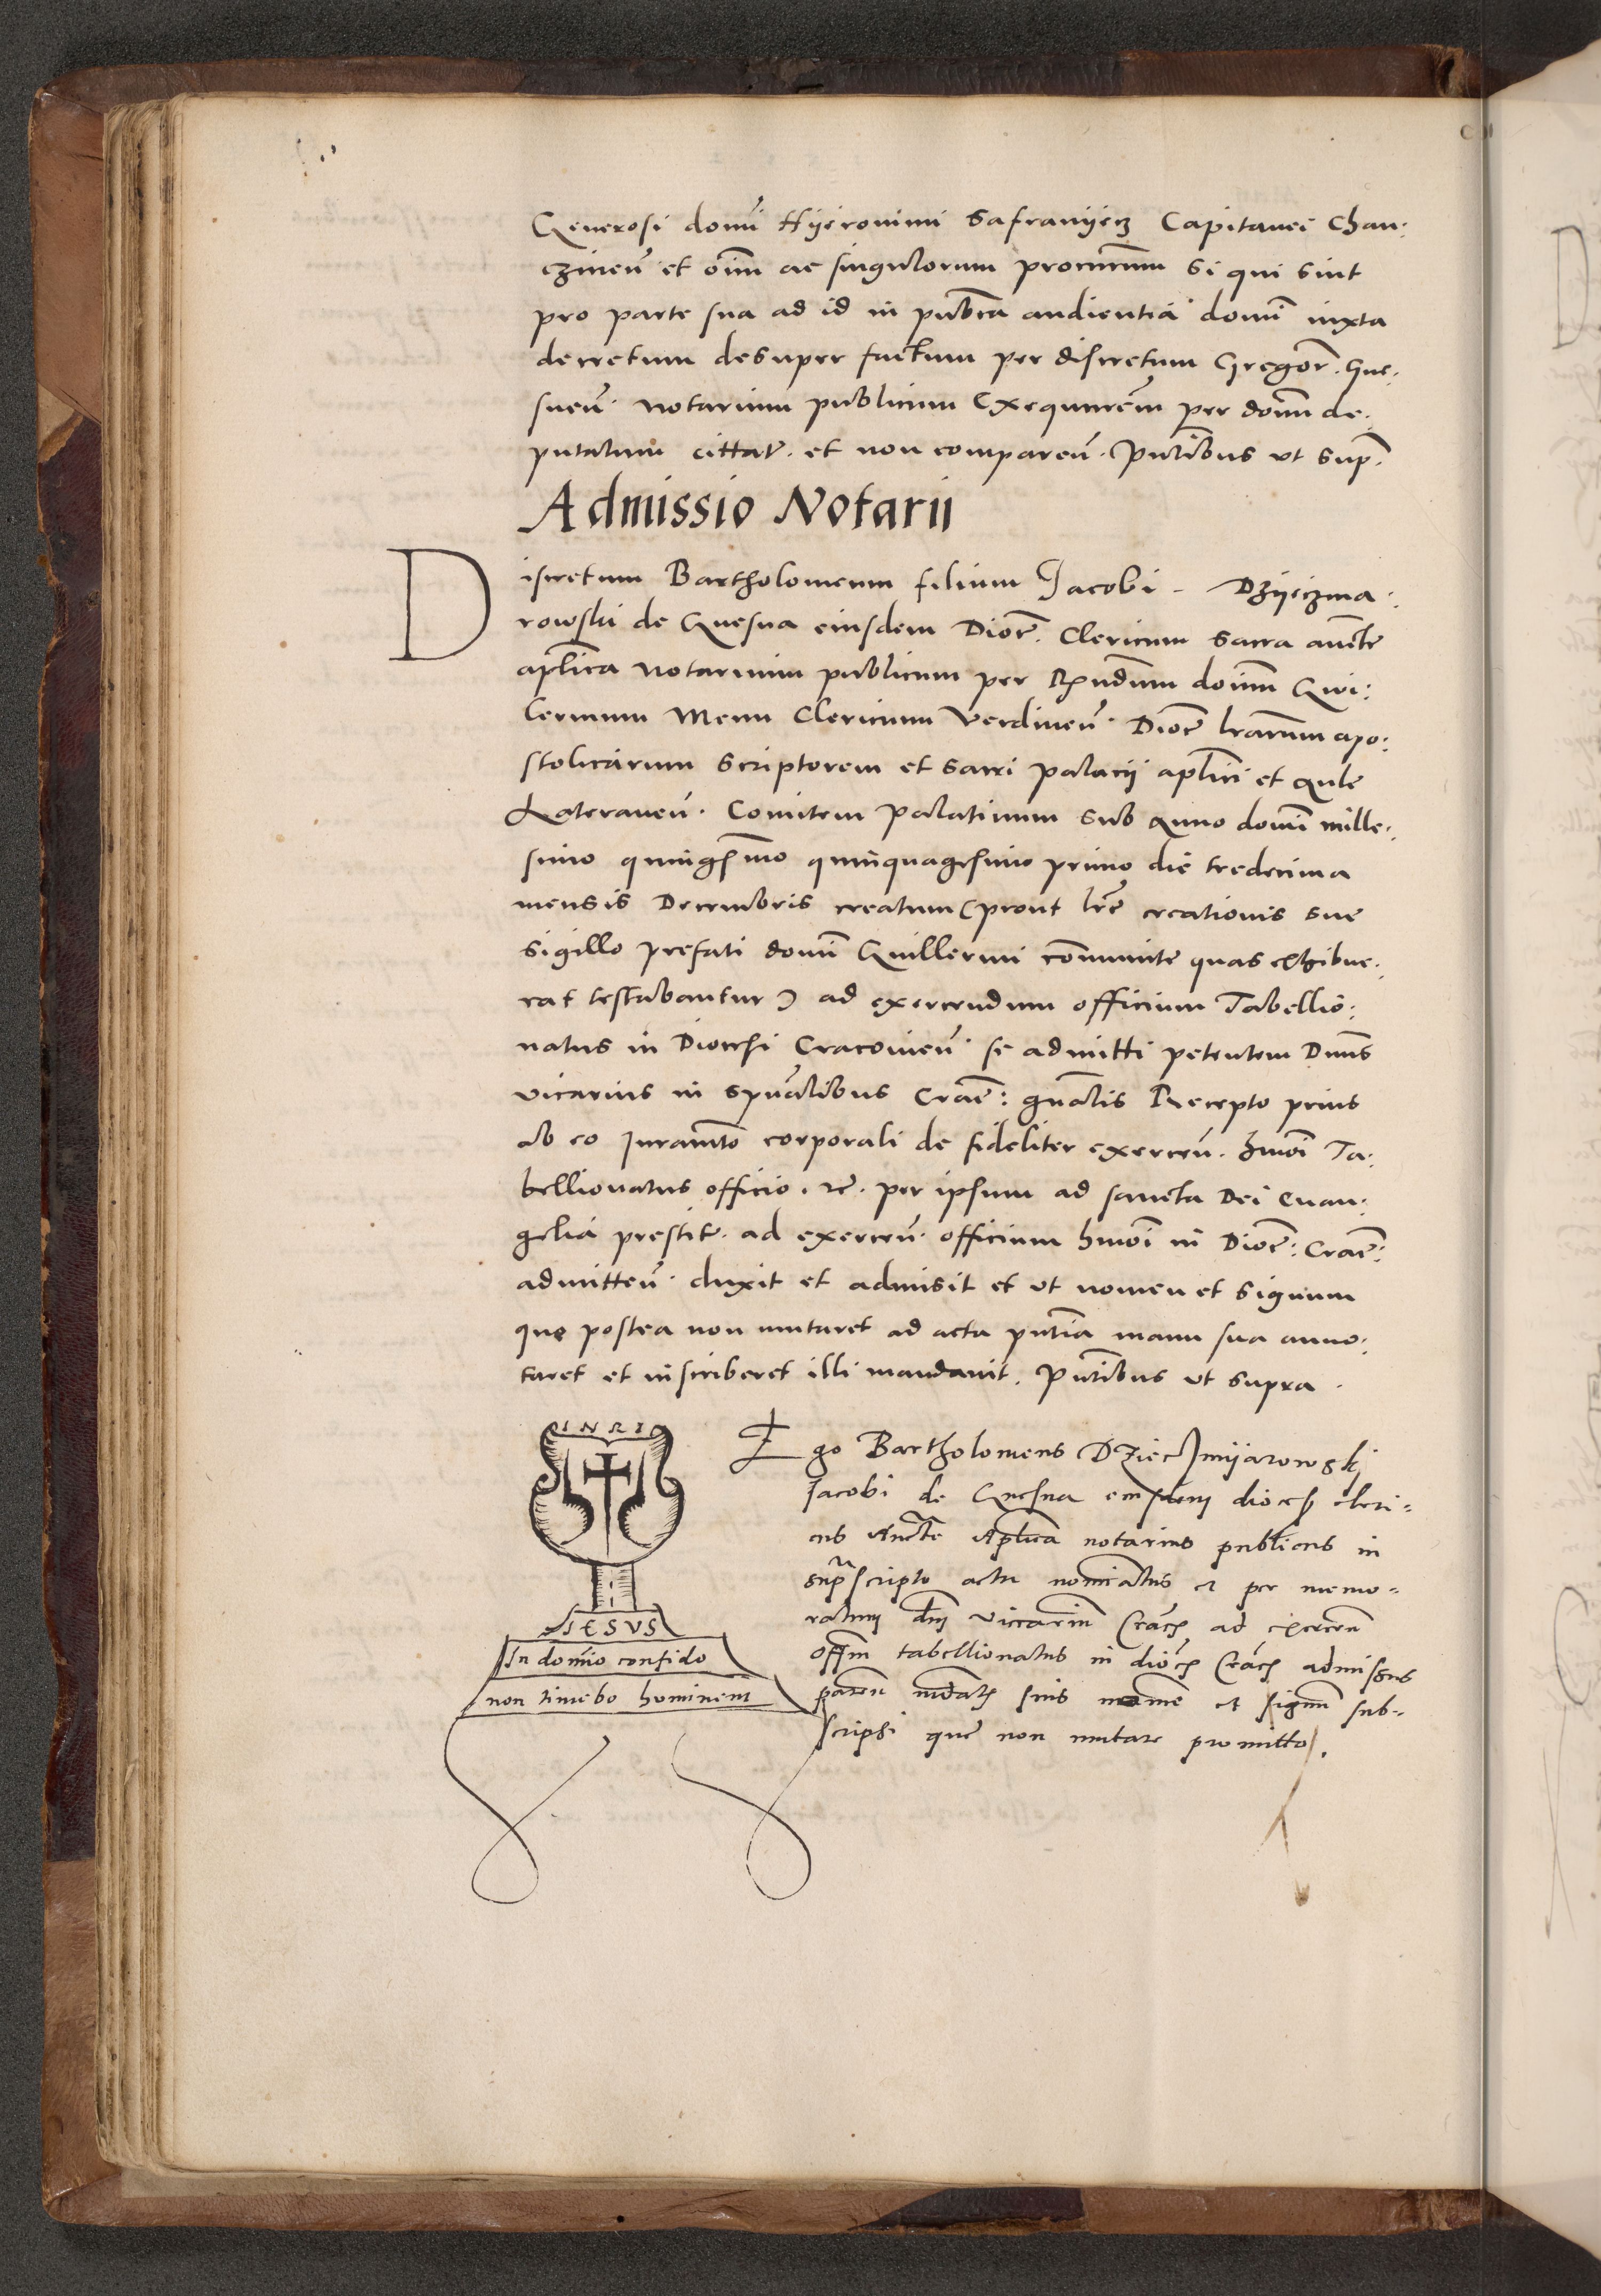 Generosi domi Hyeronimi Safranyecz Capitanei Chan:
czineñ et oim ac singulorum procurm̄ si qui sint
pro parte sua ad id in pub̄ca audientia domi iuxta
decretum desuper factum per discretum Gregoř. Gne:
sneñ notarium publicum Exequutem per domi de:
putatum cittať. et non compareñ. Pñtibus ut sup̄.
Admissio Notarii
Discretum Bartholomeum filium Jacobi - Dzyeczma:
rowski de Gnesna eiusdem Dioc̄. Clericum sacra auc̄te
aplica notarium publicum per Rn̄dum doim̄ Gwi:
lermum Menu Clericum Verdineñ Dioc̄ lrar̄um apo:
stolicarum scriptorem et sacri palacii aplici et Aule
Lateraneñ. Comitem Palatinum sub Anno domi mille:
simo quingsimo quinquagesimo primo die tredecima
mensis Decembris creatum (prout lr̄e creationis sue
sigillo prefati domi Guillermi com̄unite quas exhibue:
rat testabantur) ad exercendum officium Tabellio:
natus in Diocesi Cracovieñ se admitti petentem Dn̄us
vicarius in spūalibus Crac̄: gnalis Recepto prius
ab eo Juram̄to corporali de fideliter exerceñ. hmōi Ta:
bellionatus officio. rc̄. per ipsum ad sancta Dei Evan:
gelia prestiť. ad exerceñ officium hmōi in Dioc̄: Crac̄:
admitteñ duxit et admisit et ut nomen et signum
que postea non mutaret ad acta pn̄tia manu sua anno:
taret et inscriberet illi mandavit. Pn̄tibus ut supra.
INRI
IESUS
In domīo confido
non timebo hominem
Ego Bartholomeus Dzieczmyarowskj
Jacobi de Gnesna eiusdem dioces cleri-
cus Auc̄te Aplica notarius publicus in
suprascripto actu nomīatus et per memo-
ratum dn̄i viccarīm Crac̄ ad exerceñ
offm̄ tabellionatus in dioc̄ Crac̄ admissus
pareñ mdat̄ suis nome et signm̄ sub-
scripsi que non mutare promitto.